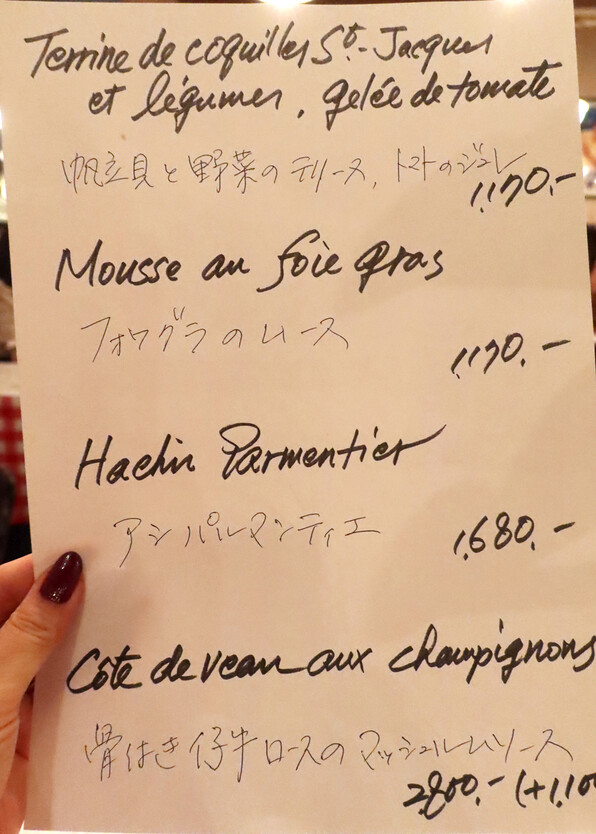 Terrine de coquilles St.-Jacques
et légumes, gelée de tomate
帆立貝と野菜のテリース, トマトのジュレ
1,170.-
Mousse au foie gras
フォワグラのムース
1,170.-
Hachis Parmentier
アシパルマンティエ
1,680.-
Côte de veau aux champignons
骨付き仔牛ロースのマッシュルームソース
2,800.- (+1,100